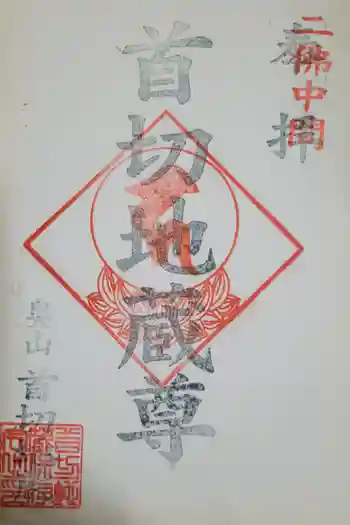 奉拝
二佛中間
首切地蔵尊
泉山 首切